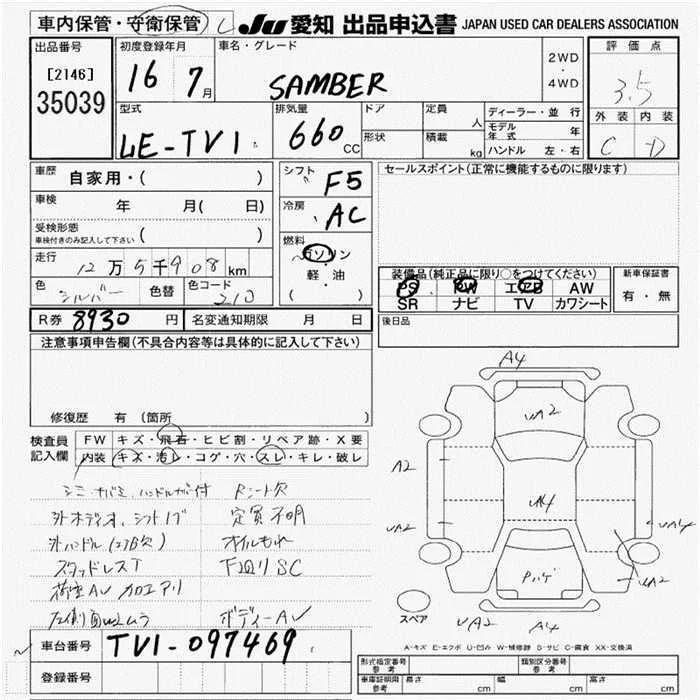 車内保管・守衛保管
JU 愛知 出品申込書 JAPAN USED CAR DEALERS ASSOCIATION
出品番号
[2146]
35039
初度登録年月
16 7月
車名・グレード
SAMBER
2WD
・
4WD
評価点
3.5
外装 内装
C D
型式
LE-TV1
排気量
660 cc
ドア
形状
定員 人
積載 kg
ディーラー・並行
モデル年式 年
ハンドル 左・右
車歴
自家用・( )
車検 年 月( 日)
受検形態
車検付きのみ記入して下さい ( )
走行 12万5千908km
色 シルバー 色替 色コード 210
シフト F5
冷房 AC
燃料
ガソリン
軽・油
( )
セールスポイント(正常に機能するものに限ります)
装備品(純正品に限り○をつけてください)
PS PW エアB AW
SR ナビ TV カワシート
新車保証書
有・無
後日品
R券 8930円 名変通知期限 月 日
注意事項申告欄(不具合内容等は具体的に記入して下さい)
修復歴 有(箇所 )
検査員記入欄
FW キズ・飛石・ヒビ割・リペア跡・X要
内装 キズ・汚レ・コゲ・穴・スレ・キレ・破レ
外ハンドル
定員不明
オイルもれ
スタッドレスT
下廻りSC
荷室AU カロエアリ
ボディーAU
A4
UA2
A2
UA2
UA4
UA4
UA2
UA2
A4
スペア
A-キズ E-エクボ U-凹み W-補修跡 S-サビ C-腐食 XX-交換済
車台番号 TV1-097469
登録番号
形式指定番号
参考
類別区分番号
参考
車庫証明用
参考
長さ cm 幅 cm 高さ cm